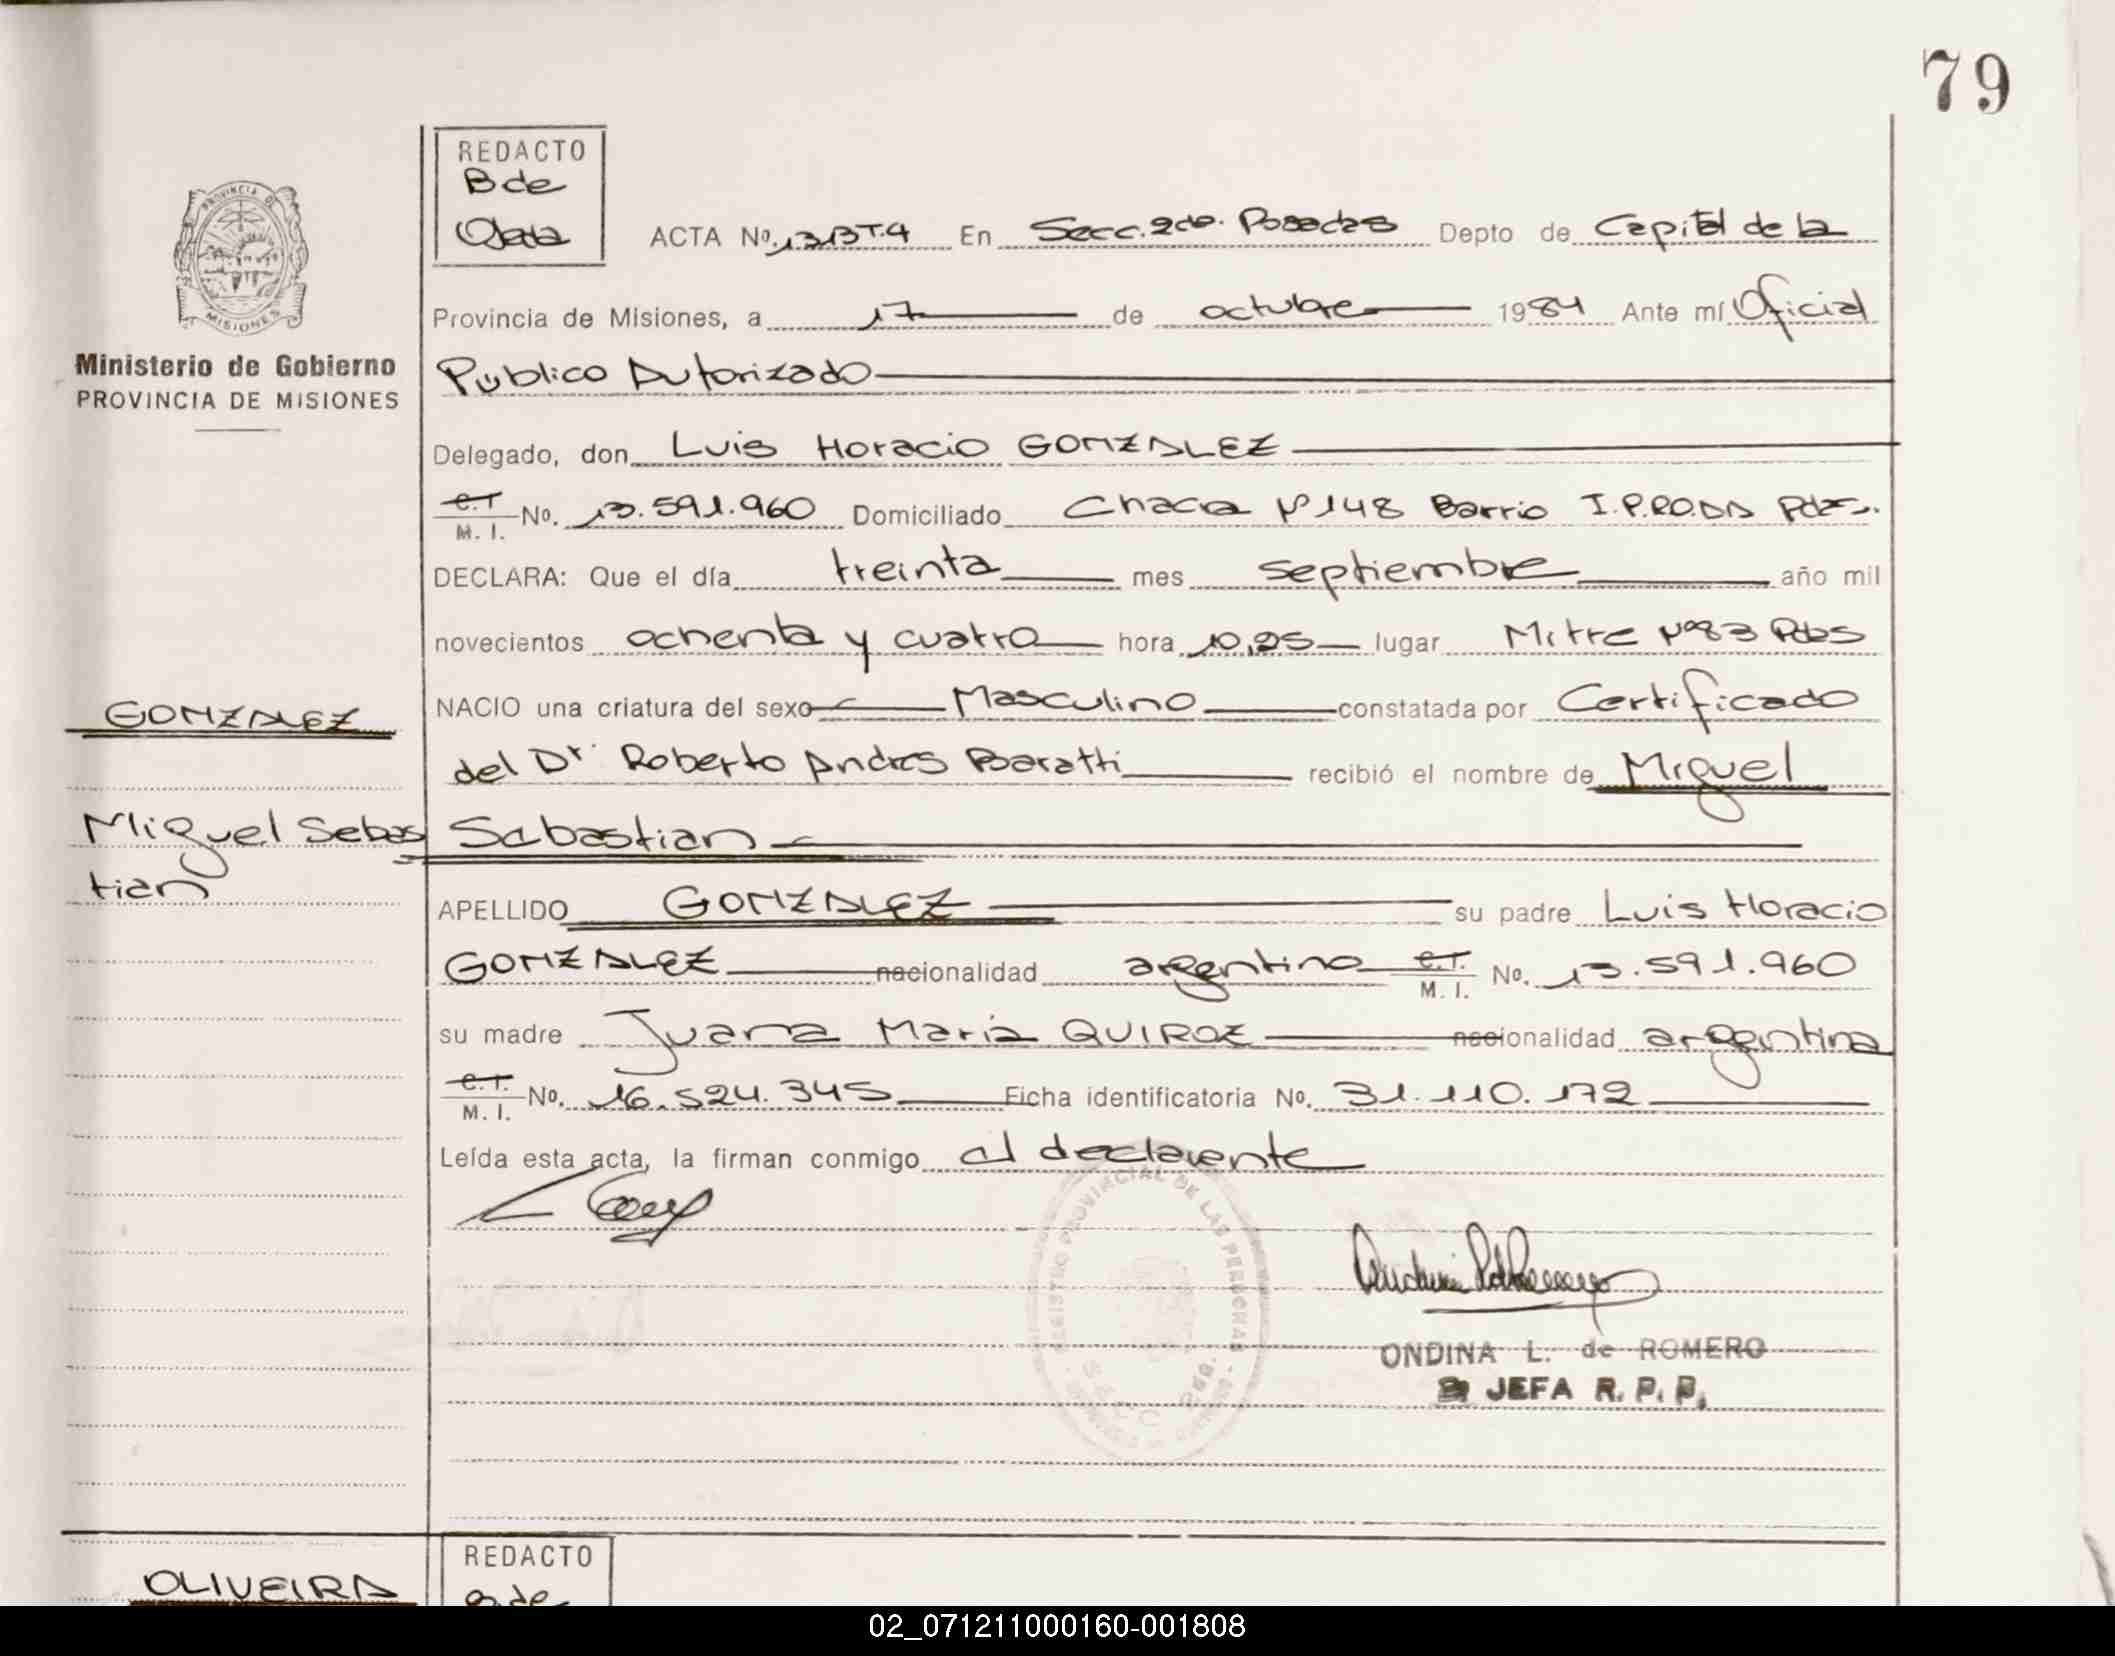 79
REDACTO
B de
Ojeda
ACTA No. 1313 T.4 En Secc. 2da. Posadas Depto de Capital de la
PROVINCIA DE
MISIONES
Provincia de Misiones, a 17 de octubre 1984 Ante mí Oficial
Ministerio de Gobierno
PROVINCIA DE MISIONES
Público Autorizado
Delegado, don Luis Horacio GONZALEZ
C.I. M. I. No. 13.591.960 Domiciliado Chacra Nº 148 Barrio I.P.RO.DA Pdas.
DECLARA: Que el día treinta mes septiembre año mil
novecientos ochenta y cuatro hora 10,25 lugar Mitre Nº 83 Pdas
GONZALEZ
NACIO una criatura del sexo Masculino constatada por Certificado
del Dr. Roberto Andres Baratti recibió el nombre de Miguel
Miguel Sebas
tian
Sebastian
APELLIDO GONZALEZ su padre Luis Horacio
GONZALEZ nacionalidad argentino C.I. M. I. No. 13.591.960
su madre Juana Maria QUIROZ nacionalidad argentina
C.I. M. I. No. 16.524.345 Ficha identificatoria No. 31.110.172
Leída esta acta, la firman conmigo el declarante
REGISTRO PROVINCIAL DE LAS PERSONAS
ONDINA L. de ROMERO
JEFA R. P. P.
OLIVEIRA
REDACTO
02_071211000160-001808